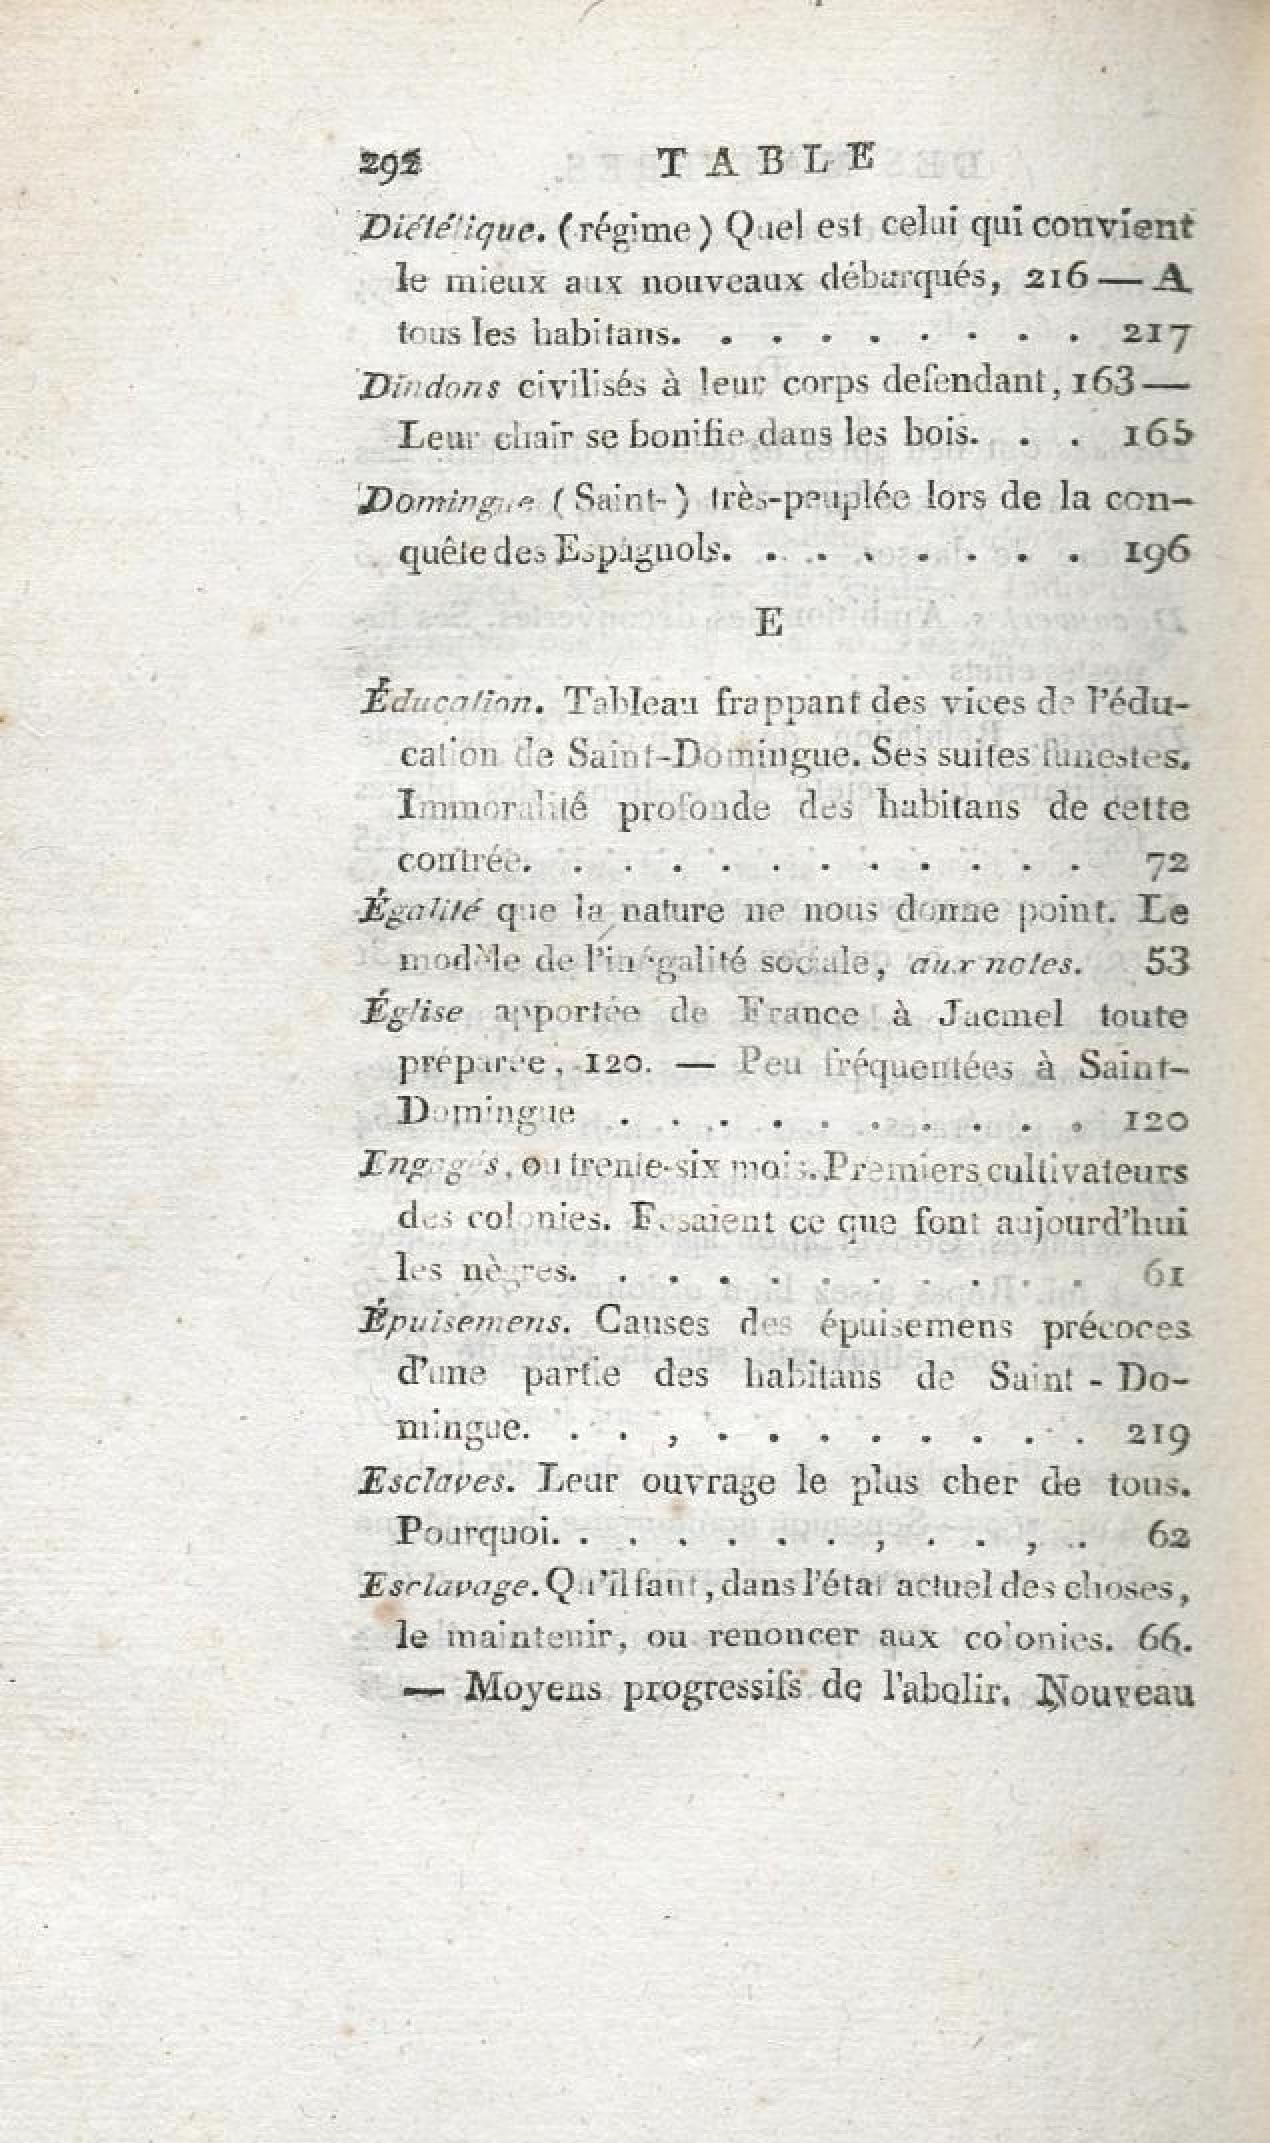 292 TABLE
Diététique. (régime) Quel est celui qui convient
le mieux aux nouveaux débarqués, 216 — A
tous les habitans. . . . . . . . . 217
Dindons civilisés à leur corps defendant, 163 —
Leur chair se bonifie dans les bois. . . 165
Domingue (Saint-) très-peuplée lors de la con-
quête des Espagnols. . . . . . . . 196
E
Éducation. Tableau frappant des vices de l'édu-
cation de Saint-Domingue. Ses suites funestes.
Immoralité profonde des habitans de cette
contrée. . . . . . . . . . . . 72
Égalité que la nature ne nous donne point. Le
modèle de l'inégalité sociale, aux notes. 53
Église apportée de France à Jacmel toute
préparée, 120. — Peu fréquentées à Saint-
Domingue . . . . . . . . . . 120
Engagés, ou trente-six mois. Premiers cultivateurs
des colonies. Fesaient ce que font aujourd'hui
les nègres. . . . . . . . . . . 61
Épuisemens. Causes des épuisemens précoces
d'une partie des habitans de Saint - Do-
mingue. . . , . . . . . . . . . 219
Esclaves. Leur ouvrage le plus cher de tous.
Pourquoi. . . . . . . , . . , . . 62
Esclavage. Qu'il faut, dans l'état actuel des choses,
le maintenir, ou renoncer aux colonies. 66.
— Moyens progressifs de l'abolir. Nouveau